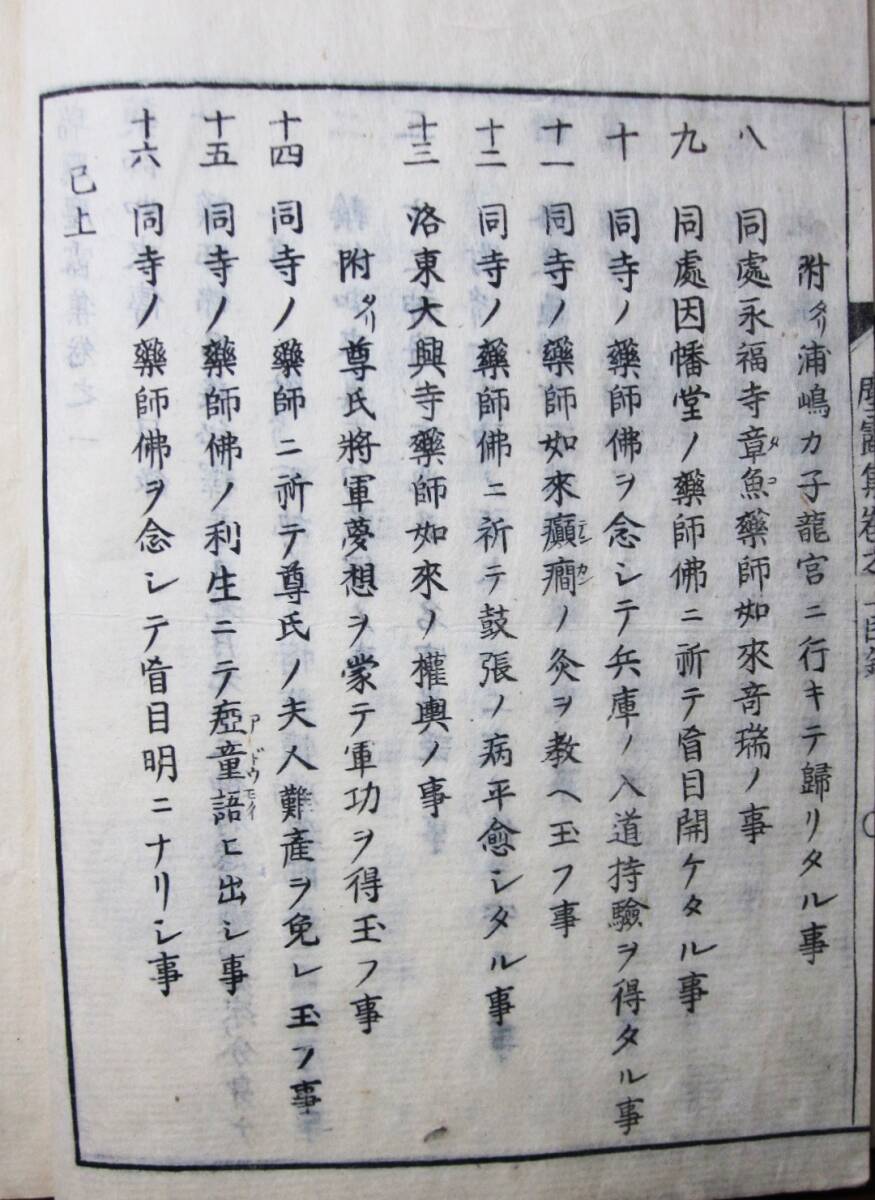 附タリ浦嶋カ子龍宮ニ行キテ歸リタル事
八 同處永福寺章魚藥師如來奇瑞ノ事
タコ
九 同處因幡堂ノ藥師佛ニ祈テ盲目開ケタル事
十 同寺ノ藥師佛ヲ念シテ兵庫ノ入道持驗ヲ得タル事
十一 同寺ノ藥師如來癲癇ノ灸ヲ教ヘ玉フ事
テンカン
十二 同寺ノ藥師佛ニ祈テ鼓張ノ病平愈シタル事
十三 洛東大興寺藥師如來ノ權輿ノ事
附タリ尊氏將軍夢想ヲ蒙テ軍功ヲ得玉フ事
十四 同寺ノ藥師ニ祈テ尊氏ノ夫人難產ヲ免レ玉フ事
十五 同寺ノ藥師佛ノ利生ニテ瘂童語ヒ出シ事
アドウモノイ
十六 同寺ノ藥師佛ヲ念シテ盲目明ニナリシ事
已上